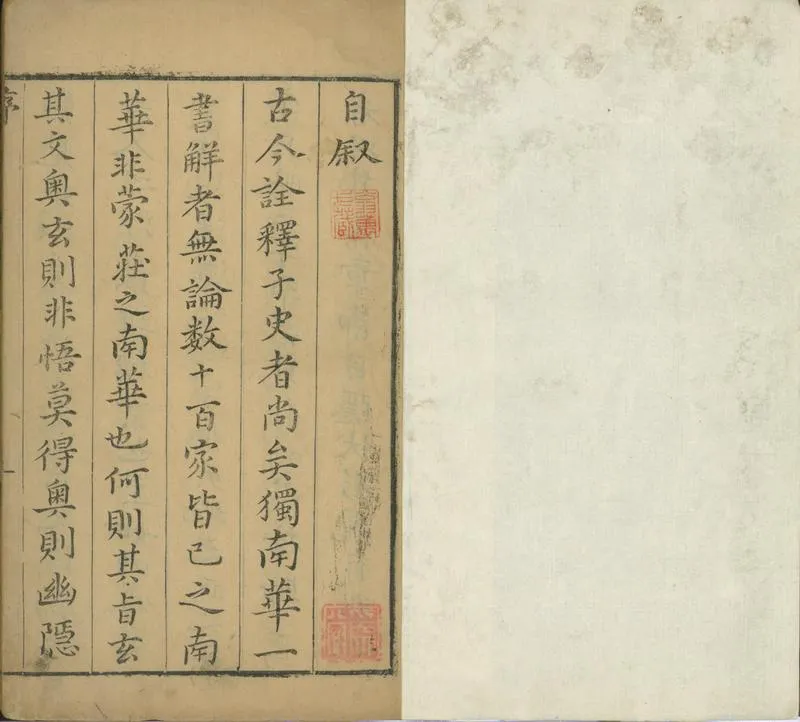 自叙
古今詮釋子史者尚矣獨南華一
書解者無論数十百家皆已之南
華非蒙莊之南華也何則其旨玄
其文奥玄則非悟莫得奥則幽隱
序